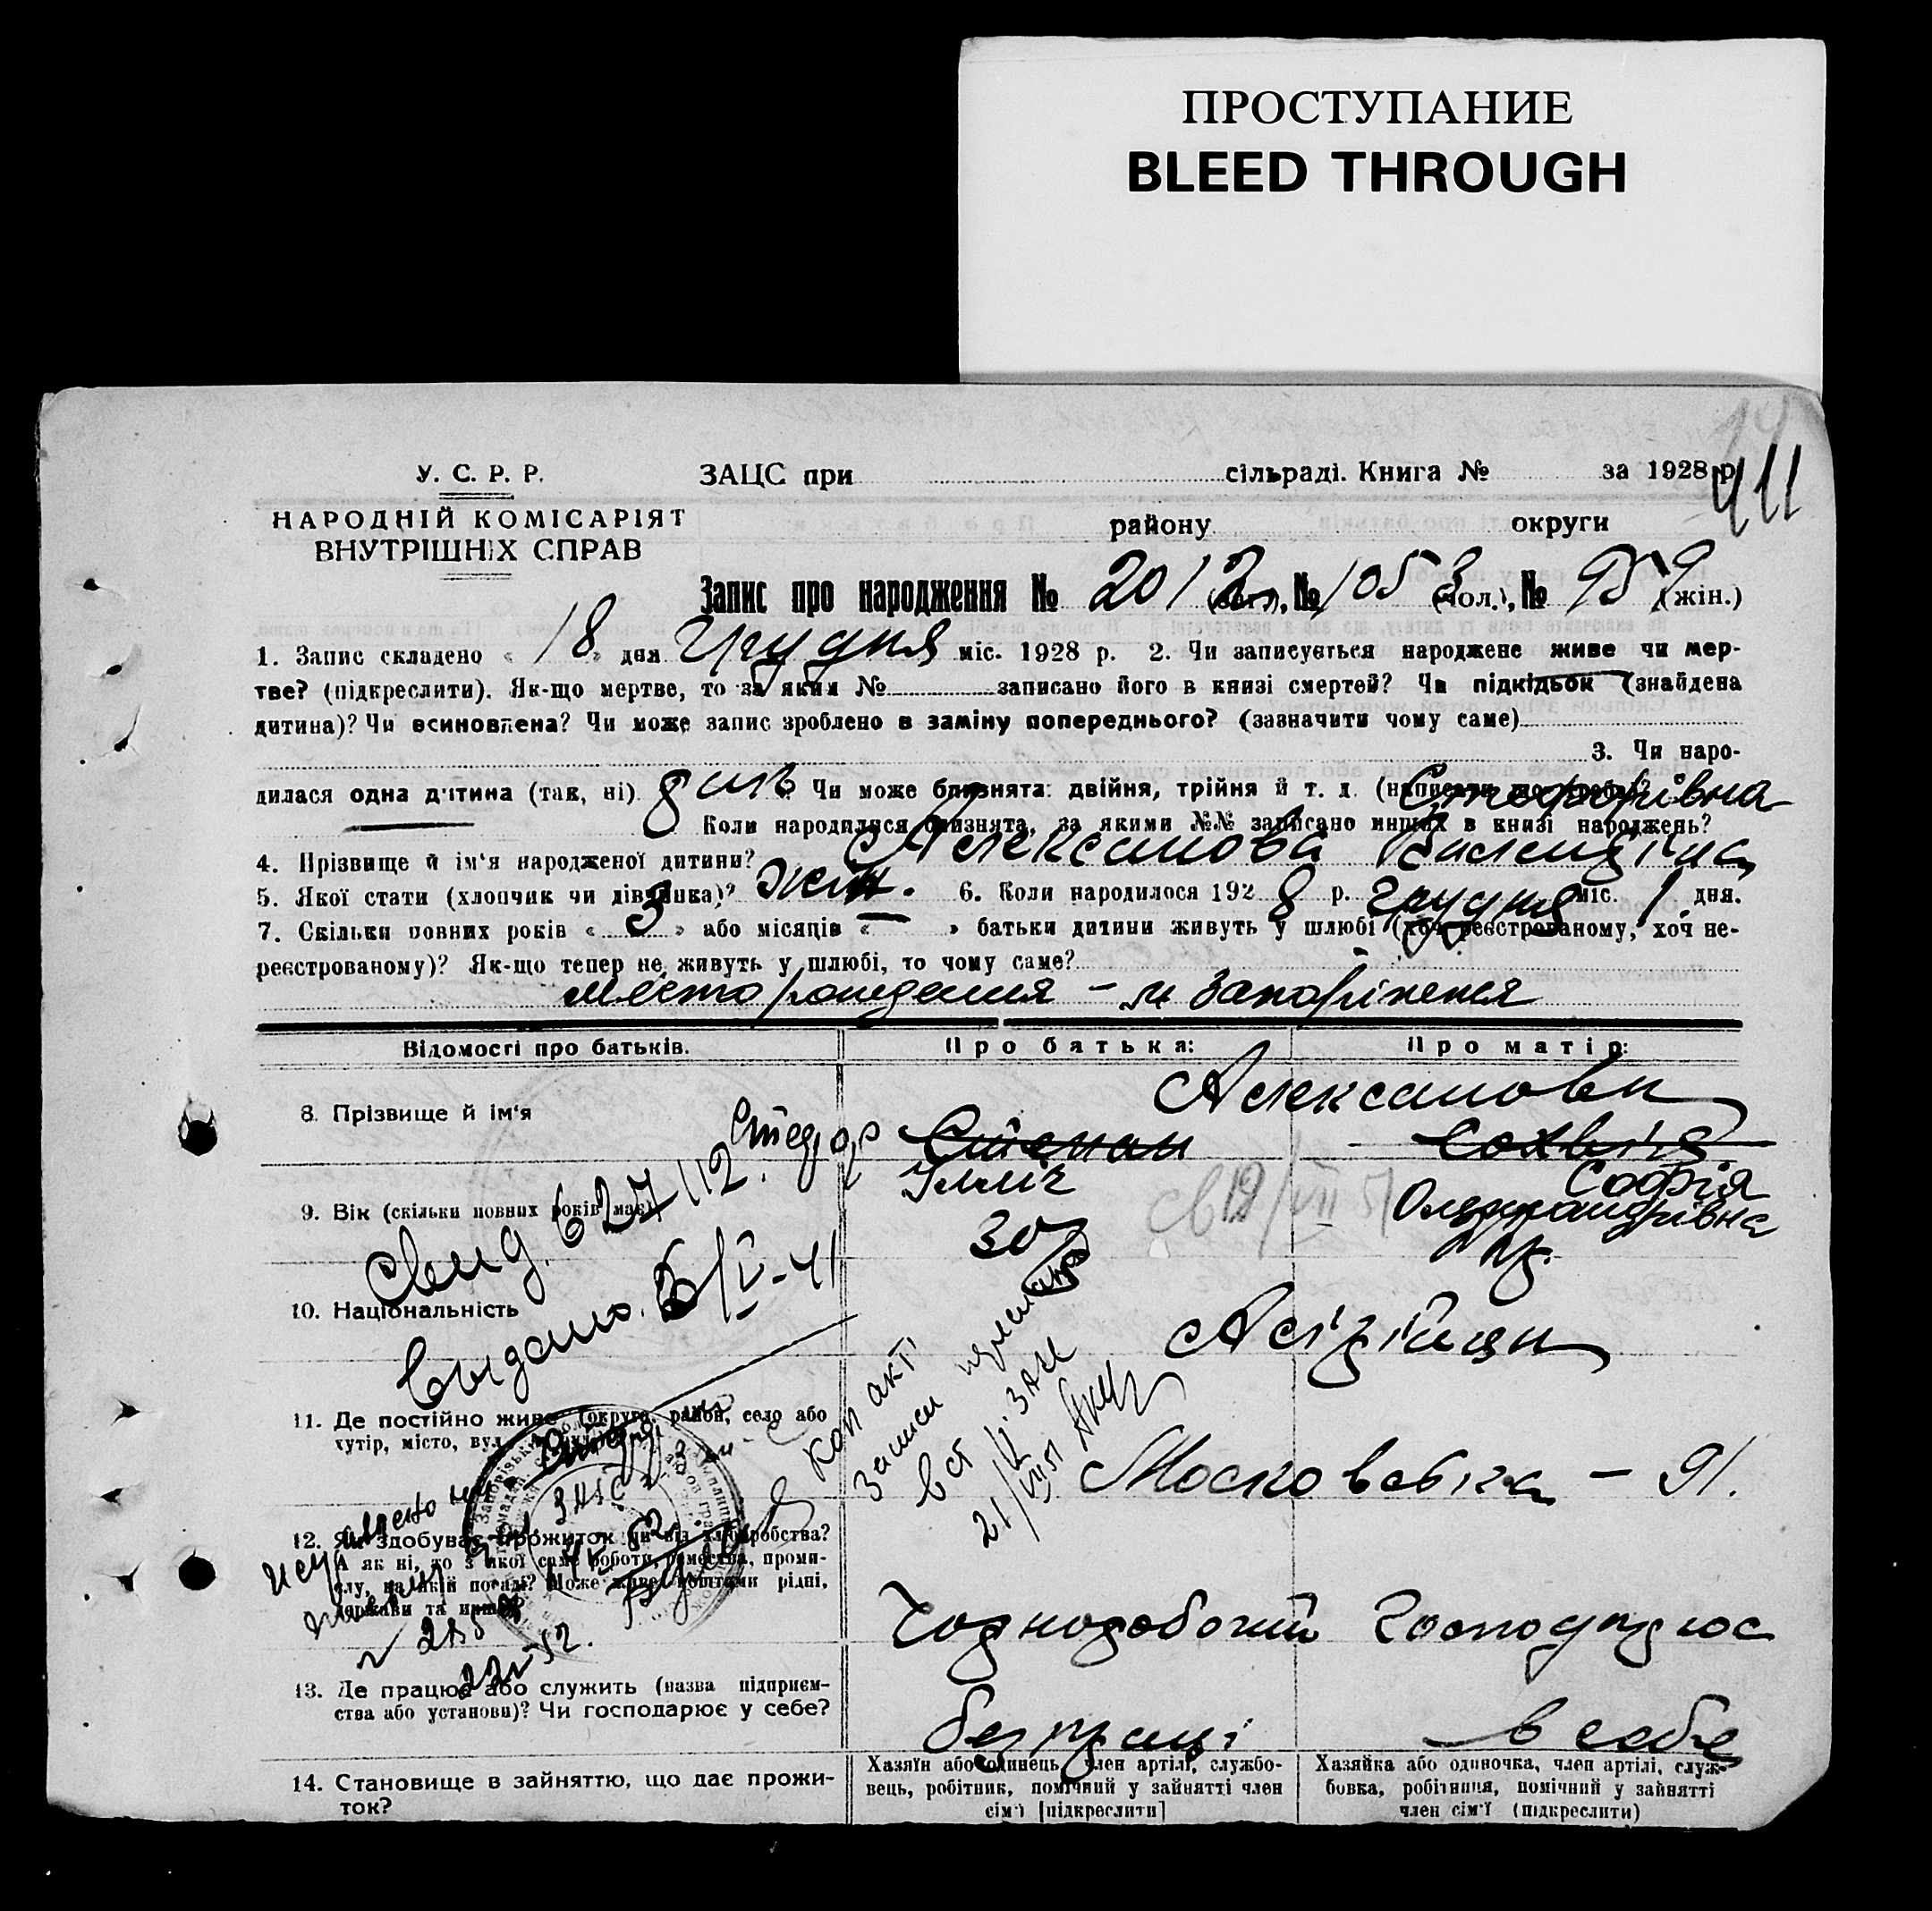 ПРОСТУПАНИЕ
BLEED THROUGH
411
У. С. Р. Р.
НАРОДНІЙ КОМІСАРІЯТ
ВНУТРІШНІХ СПРАВ
ЗАЦС при сільраді. Книга № за 1928 р.
району округи
Запис про народження № 2012 , № 1053 (чол.), № 959 (жін.)
1. Запис складено « 18 » дня Грудня міс. 1928 р. 2. Чи записується народжене живе чи мер-
тве? (підкреслити). Як-що мертве, то за яким № записано його в книзі смертей? Чи підкідьок (знайдена
дитина)? Чи всиновлена? Чи може запис зроблено в заміну попереднього? (зазначити чому саме)
3. Чи наро-
дилася одна дитина (так, ні) Чи може близнята: двійня, трійня й т. д.
Коли народилися близнята, за якими №№ записано инших в книзі народжень?
4. Прізвище й ім'я народженої дитини? Алексанова Валендіна
5. Якої стати (хлопчик чи дівчинка)? жін. 6. Коли народилося 1928 р. грудня міс. 1 дня.
7. Скільки повних років « 3 » або місяців « — » батьки дитини живуть у шлюбі (хоч реєстрованому, хоч не-
реєстрованому)? Як-що тепер не живуть у шлюбі, то чому саме?
Место рождения – м Запоріжжя
Відомості про батьків. Про батька: Про матір:
Алексанови
8. Прізвище й ім'я Степан Сохвія
Ілліч Софія
Олександрівна
9. Вік (скільки повних років має) 30
Свид. 627112.
Выдано. 6/V-41
св 19/VII 51
10. Національність Асірійци
11. Де постійно живе (округа, район, село або
хутір, місто, вул. Московська – 91.
коп акт
записи
21/VII 51
12. Як здобуває прожиток чи від хліборобства?
А як ні, то з якої саме роботи, ремества, проми-
слу, на якій посаді? Може живе коштами рідні,
держави та инш.
Чорноробочий Господарює
13. Де працює або служить (назва підприєм-
ства або установи)? Чи господарює у себе?
без праці в себе
14. Становище в зайняттю, що дає прожи-
ток?
Хазяїн або одинець, член артілі, службо-
вець, робітник, помічний у зайнятті член
сім'ї [підкреслити]
Хазяйка або одиночка, член артілі, служ-
бовка, робітниця, помічний у зайнятті
член сім'ї (підкреслити)